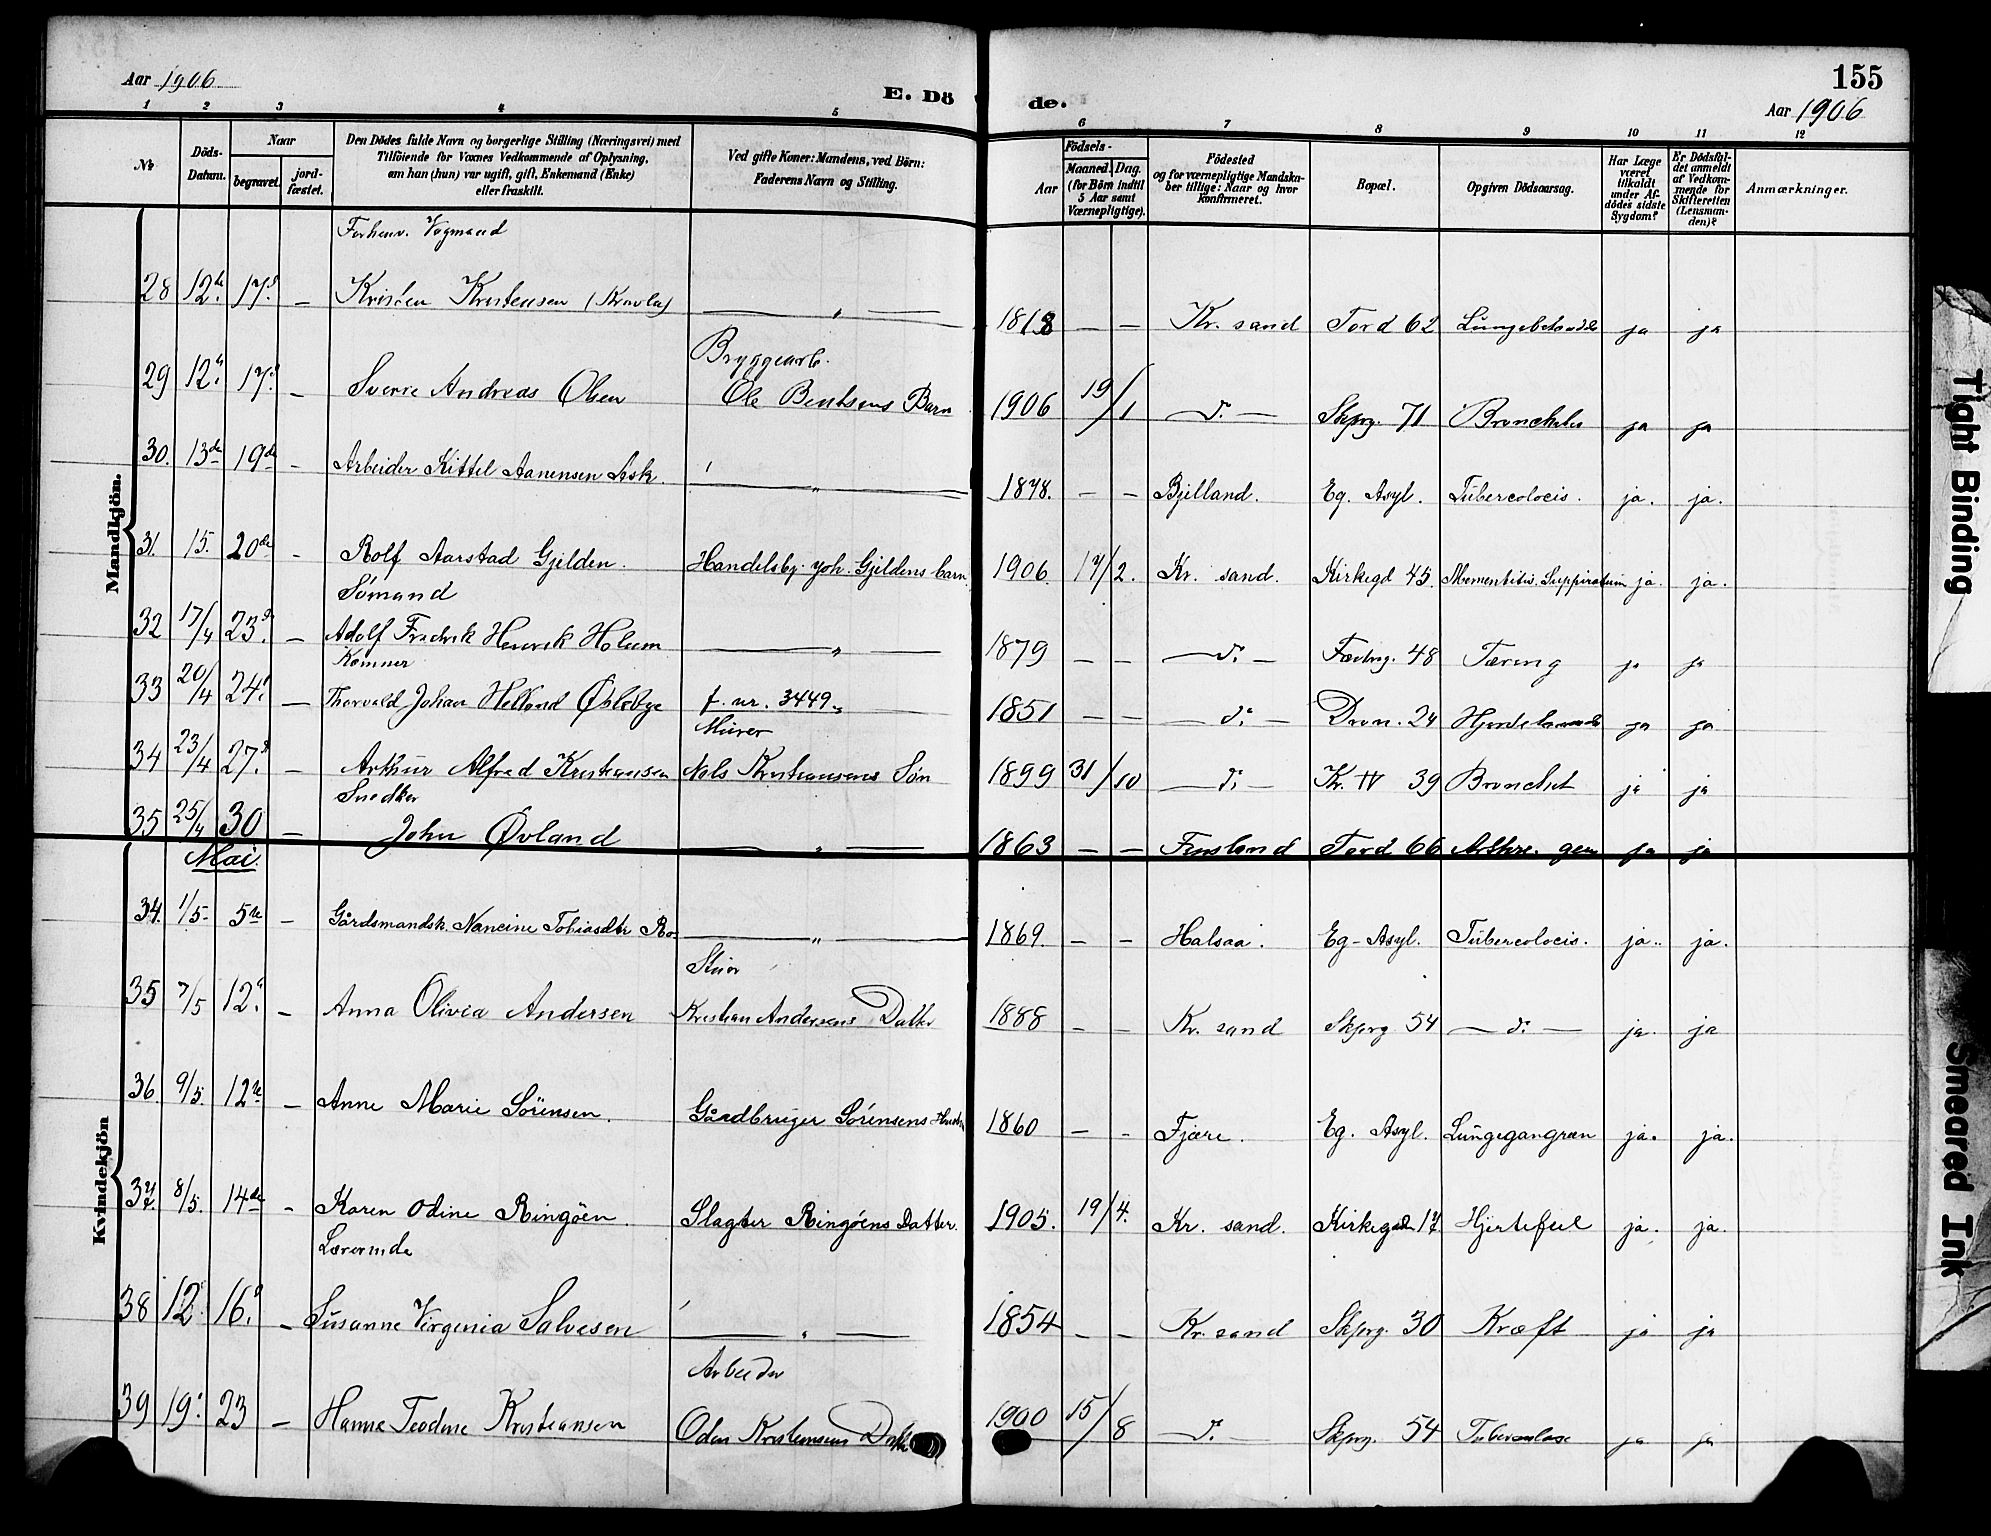 155
Aar 1906
E. Dö de.
Aar 1906
1 2 3 4 5 6 7 8 9 10 11 12
No
Döds-Datum.
Naar
begravet.
jord-fæstet.
Den Dödes fulde Navn og borgerlige Stilling (Næringsvei) med
Tilföiende for Voxnes Vedkommende af Oplysning,
om han (hun) var ugift, gift, Enkemand (Enke)
eller fraskilt.
Ved gifte Koner: Mandens, ved Börn:
Faderens Navn og Stilling.
Födsels-
Aar
Maaned. Dag.
(for Börn indtil
5 Aar samt
Værnepligtige).
Födested
og for værnepligtige Mandska-
ber tillige: Naar og hvor
konfirmeret.
Bopæl.
Opgiven Dödsaarsag.
Har Læge
været
tilkaldt
under Af-
dödes sidste
Sygdom?
Er Dödsfal-
det anmeldt
af Vedkom-
mende for
Skifteretten
(Lensman-
den)?
Anmærkninger.
Mandkjön.
Forhenv. Vognmand
28 12te 17d — Kristen Kristensen — „ — 1818 — — Kr. sand Tord 62 ja ja
Bryggearb.
29 12te 17d — Sverre Andreas Olsen Ole Bentsens Barn 1906 19/1 — d. — Skprg. 71 ja ja
30. 13de 19de — Arbeider Kittel Aanensen Ask. — „ — 1878. — — Bjelland. Eg. Asyl. Tübercolocis. ja. ja.
31. 15. 20de — Rolf Aarstad Gjelden. Handelsbg. Joh. Gjeldens barn 1906. 17/2. Kr. sand. Kirkegd 45. ja. ja.
Sømand
32 17/4 23d — Adolf Fredrik Henrik Holum — „ — 1879 — — — d. — 48 Tæring ja ja
Kæmner
33 20/4 24d — Thorvald Johan Helland Øvlebye f. nr. 3449 — 1851 — — — d. — Dron. 24 ja ja
Mürer
34 23/4 27d — Arthur Alfred Kristiansen Nils Kristiansens Søn 1899 31/10 — d. — Kr. IV 39 Bronchit ja ja
Snedker
35 25/4 30 — John Øvland — „ — 1863 — — Finsland Tord 66 ja ja
Kvindekjön
Mai.
34. 1/5. 5te — Gårdsmandsk. Nancine Tobiasdtr — „ — 1869. — — Halsaa. Eg-Asyl. Tübercolocis. ja. ja.
Stuer
35 7/5 12te — Anna Olivia Andersen Kristian Andersens Datter 1888 — — Kr. sand Skprg 54 — d. — ja. ja
36. 9/5. 12te — Anne Marie Sörensen. Gåardbruger Sörensens 1860 — — Fjære. Eg. Asyl. Lüngegangræn ja. ja.
37. 8/5. 14de — Karen Odine Ringöen. Slagter Ringöens Datter. 1905. 19/4. Kr. sand. Kirkegaden 17 Hjertefeil ja. ja.
Lærerinde
38 12 16d — Susanne Virginia Salvesen — „ — 1854 — — Kr. sand Skprg. 30 Kræft ja ja
Arbeider
39 19. 23 — Hanne Teodine Kristiansen Oden Kristiansens Datter 1900 15/8 — d. — Skprg. 54 Tuberculose ja ja
Tight Binding
Smeared Ink